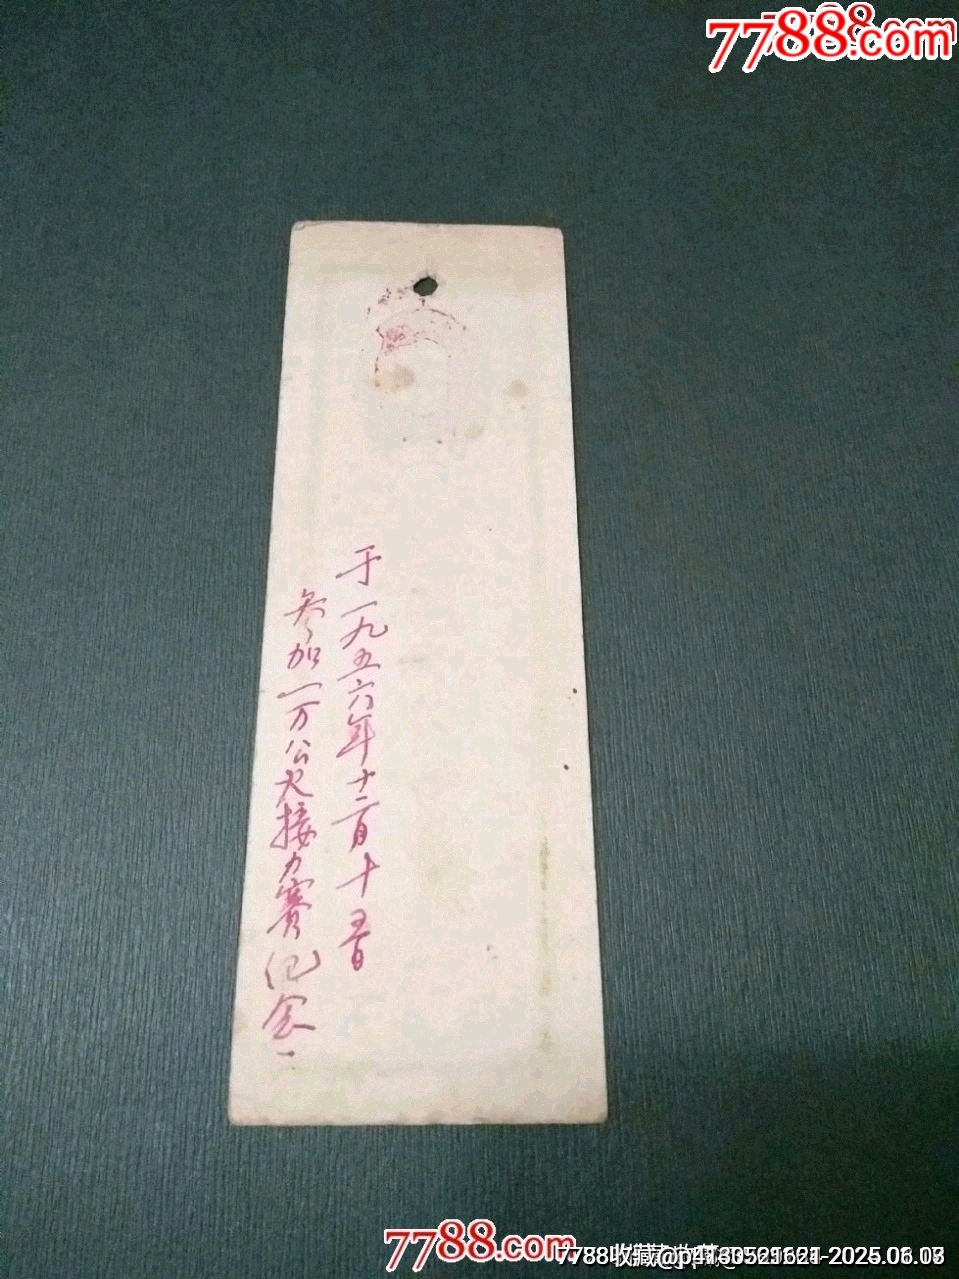 7788.com
于一九五六年十二月十五日
参加一万公尺接力赛纪念
7788.com
7788收藏